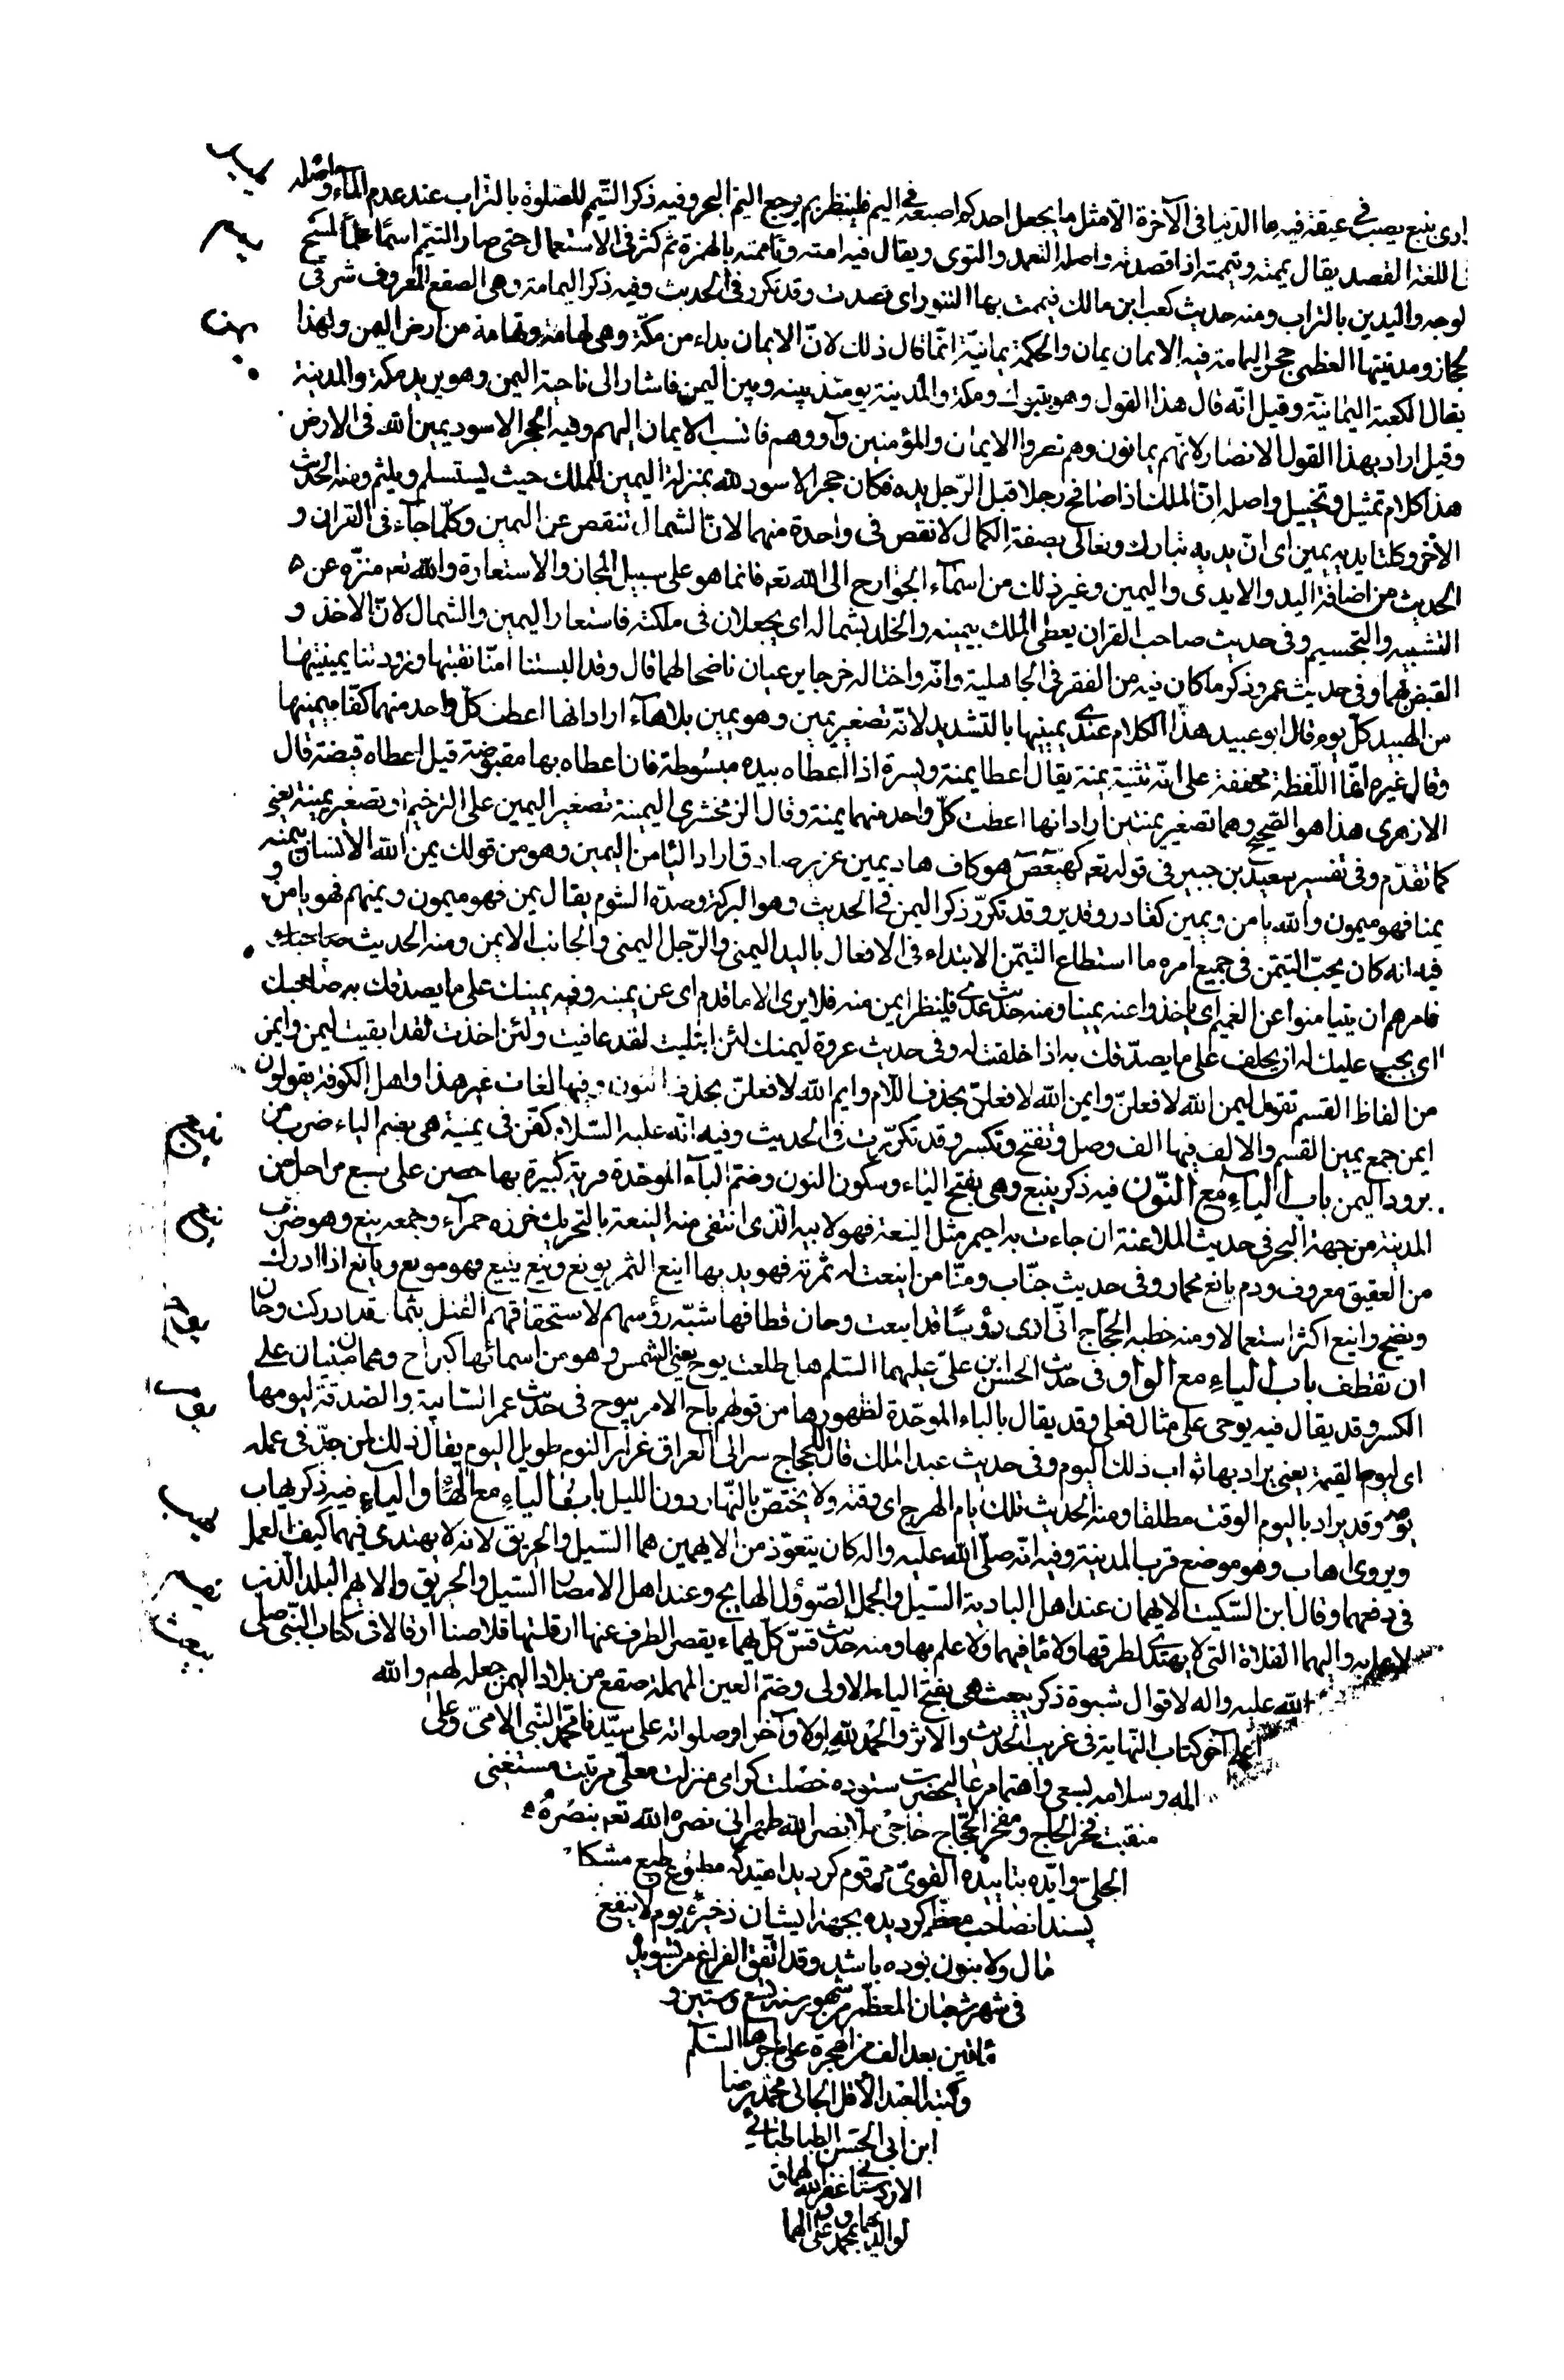 ادى ينبع يصب فى عيقة فيه ما الدنيا فى الآخرة الا مثل ما يجعل احدكم اصبعه فى اليم فلينظر بم يرجع اليم البحر وفيه ذكر التيمم للصلوة بالتراب عند عدم الماء واصله
فى اللغة القصد يقال يممته وتيممته اذا قصدته واصله التعمد والتوخى ويقال فيه اممته وتاممته بالهمزة ثم كثر فى الاستعمال حتى صار التيمم اسما علما لمسح
لوجه واليدين بالتراب ومنه حديث كعب ابن مالك فيممت بها التنور اى قصدت وقد تكرر فى الحديث وفيه ذكر اليمامة وهى الصقع المعروف شرقى
لحجاز ومدينتها العظمى حجر اليمامة فيه الايمان يمان والحكمة يمانية انما قال ذلك لان الايمان بداء من مكة وهى تهامة وتهامة من ارض اليمن ولهذا
يقال الكعبة اليمانية وقيل انه قال هذا القول وهو بتبوك ومكة والمدينة يومئذ بينه وبين اليمن فاشار الى ناحية اليمن وهو يريد مكة والمدينة
وقيل اراد بهذا القول الانصار لانهم يمانون وهم نصروا الايمان والمؤمنين وآووهم فانسب الايمان اليهم وفيه الحجر الاسود يمين الله فى الارض
هذا كلام تمثيل وتخييل واصله ان الملك اذا صافح رجلا قبل الرجل يده فكان حجر الاسود لله بمنزلة اليمين للملك حيث يستسلم ويلثم ومنه الحديث
الآخر وكلتا يديه يمين اى ان يديه تبارك وتعالى بصفة الكمال لا نقص فى واحدة منهما لان الشمال تنقص عن اليمين وكلما جاء فى القران و
الحديث من اضافة اليد والايدى واليمين وغير ذلك من اسماء الجوارح الى الله تعه فانما هو على سبيل المجاز والاستعارة والله تعه منزه عن
التشبيه والتجسيم وفى حديث صاحب القران يعطى الملك بيمينه والخلد بشماله اى يجعلان فى ملكته فاستعار اليمين والشمال لان الاخذ و
القبض بهما وفى حديث عمر وذكر ما كان فيه من الفقر فى الجاهلية وانه واختا له خرجا يرعيان ناضحا لهما قال وقد البستنا امنا نقبتها وزودتنا يمينتيها
من الهبيد كل يوم قال ابو عبيد هذا الكلام عندى يمينيها بالتشديد لانه تصغير يمين وهو يمين بلا هاء اراد انها اعطت كل واحد منهما كفا بيمينها
وقال غيره انما اللفظة مخففة على انه تثنية يمنة يقال اعطا يمنة ويسرة اذا اعطاه بيده مبسوطة فان اعطاه بها مقبوضة قيل اعطاه قبضة قال
الازهرى هذا هو الصحيح وهما تصغير يمنتين اراد انها اعطت كل واحد منهما يمنة وقال الزمخشرى اليمينة تصغير اليمين على الترخيم او تصغير يمنة يعنى
كما تقدم وفى تفسير سعيد بن جبير فى قوله تعه كهيعص هو كاف هاد يمين عزيز صادق اراد اليا من اليمين وهو من قولك يمن الله الانسان يمنه
يمنا فهو ميمون والله يامن ويمين كقادر وقدير وقد تكرر ذكر اليمن فى الحديث وهو البركة وضده الشوم يقال يمن فهو ميمون ويمنهم فهو يامن و
فيه انه كان يحب التيمن فى جميع امره ما استطاع التيمن الابتداء فى الافعال باليد اليمنى والرجل اليمنى والجانب الايمن ومنه الحديث
فامرهم ان يتيامنوا عن الغميم اى ياخذوا عنه يمينا ومنه حديث عدى فلينظر ايمن منه فلا يرى الا ما قدم اى عن يمينه وفيه يمينك على ما يصدقك به صاحبك
اى يجب عليك له ان يحلف على ما يصدقك به اذا حلفت له وفى حديث عروة ليمنك لئن ابتليت لقد عافيت ولئن اخذت لقد ابقيت ليمن وايمن
من الفاظ القسم تقول ليمن الله لافعلن وايمن الله لافعلن بحذف اللام وايم الله لافعلن بحذف النون وفيها لغات غير هذا واهل الكوفة يقولون
ايمن جمع يمين القسم والالف فيها الف وصل وتفتح وتكسر وقد تكررت فى الحديث وفيه انه عليه السلام كفن فى يمنية هى بضم الياء ضرب من
برود اليمن باب الياء مع النون فيه ذكر ينبع وهى بفتح الياء وسكون النون وضم الباء الموحدة قرية كبيرة بها حصن على سبع مراحل من
المدينة من جهة البحر فى حديث الملاعنة ان جاءت به احيمر مثل الينعة فهو لابيه الذى انتفى منه الينعة بالتحريك خرزة حمراء وجمعه ينع وهو ضرب
من العقيق معروف ودم يانع محمار وفى حديث خباب ومنا من اينعت له ثمرته فهو يهدبها اينع الثمر يونع وينع يينع فهو مونع ويانع اذا ادرك
ونضج واينع اكثر استعمالا ومنه خطبة الحجاج انى ارى رؤسا قد اينعت وحان قطافها شبه رؤسهم لاستحقاقهم القتل بثمار قد ادركت وحان
ان تقطف باب الياء مع الواو فى حديث الحسن بن على عليهما السلم هل طلعت يوح يعنى الشمس وهو من اسمائها كبراح وهما مبنيان على
الكسر وقد يقال فيه يوحى على مثال فعلى وقد يقال بالباء الموحدة لظهورها من قولهم باح الامر يبوح فى حديث عمر السايبة والصدقة ليومها
اى ليوم القيمة يعنى يراد بها ثواب ذلك اليوم وفى حديث عبد الملك قال للحجاج سر الى العراق غرار النوم طويل اليوم يقال ذلك لمن جد فى عمله
يومه وقد يراد باليوم الوقت مطلقا ومنه الحديث تلك ايام الهرج اى وقته ولا يختص بالنهار دون الليل باب الياء مع الهاء والياء فيه ذكر يهاب
ويروى اهاب وهو موضع قرب المدينة وفيه انه صلى الله عليه واله كان يتعوذ من الايهمين هما السيل والحريق لانه لا يهتدى فيهما كيف العمل
فى دفعهما وقال ابن السكيت الايهمان عند اهل البادية السيل والجمل الصؤول الهايج وعند اهل الامصار السيل والحريق والايهم البلد الذى
لا علم به واليهما الفلاة التى لا يهتدى لطرقها ولا ما فيها ولا علم بها ومنه حديث قس كل يهماء يقصر الطرف عنها ارقلتها قلاصنا ارقالا فى كتاب النبى صلى
الله عليه واله لاقوال شبوة ذكر ييعث هى بفتح الياء الاولى وضم العين المهملة صقع من بلاد اليمن جعله لهم والله
اعلم آخر كتاب النهاية فى غريب الحديث والاثر والحمد لله اولا وآخرا وصلواته على سيدنا محمد النبى الامى وعلى
اله وسلامه بسعى واهتمام عاليحضرت ستوده خصلت كرامى منزلت معلى مرتبت مستغنى
منقبت فخر الحاج ومفخر الحجاج حاجى ملا نصر الله طهرانى نصره الله تعه بنصره
الجلى وايده بتاييده القوى مرقوم كرديد اميد كه مطبوع طبع مشكل
پسند انصاحب معظم كرديده بجهة ايشان ذخيرۀ يوم لا ينفع
مال ولا بنون بوده باشد وقد اتفق الفراغ من تسويد
فى شهر شعبان المعظم من شهور سنة تسع وستين و
مأتين بعد الف من الهجرة على مهاجرها السلم
وكتبه العبد الاقل الجانى محمد رضا
ابن ابى الحسن الطباطبائى
الاردستانى غفر الله لهما و
لوالديهما بمحمد وآلهما
ينع
يوح
يوم
يهب
يهم
ييعث